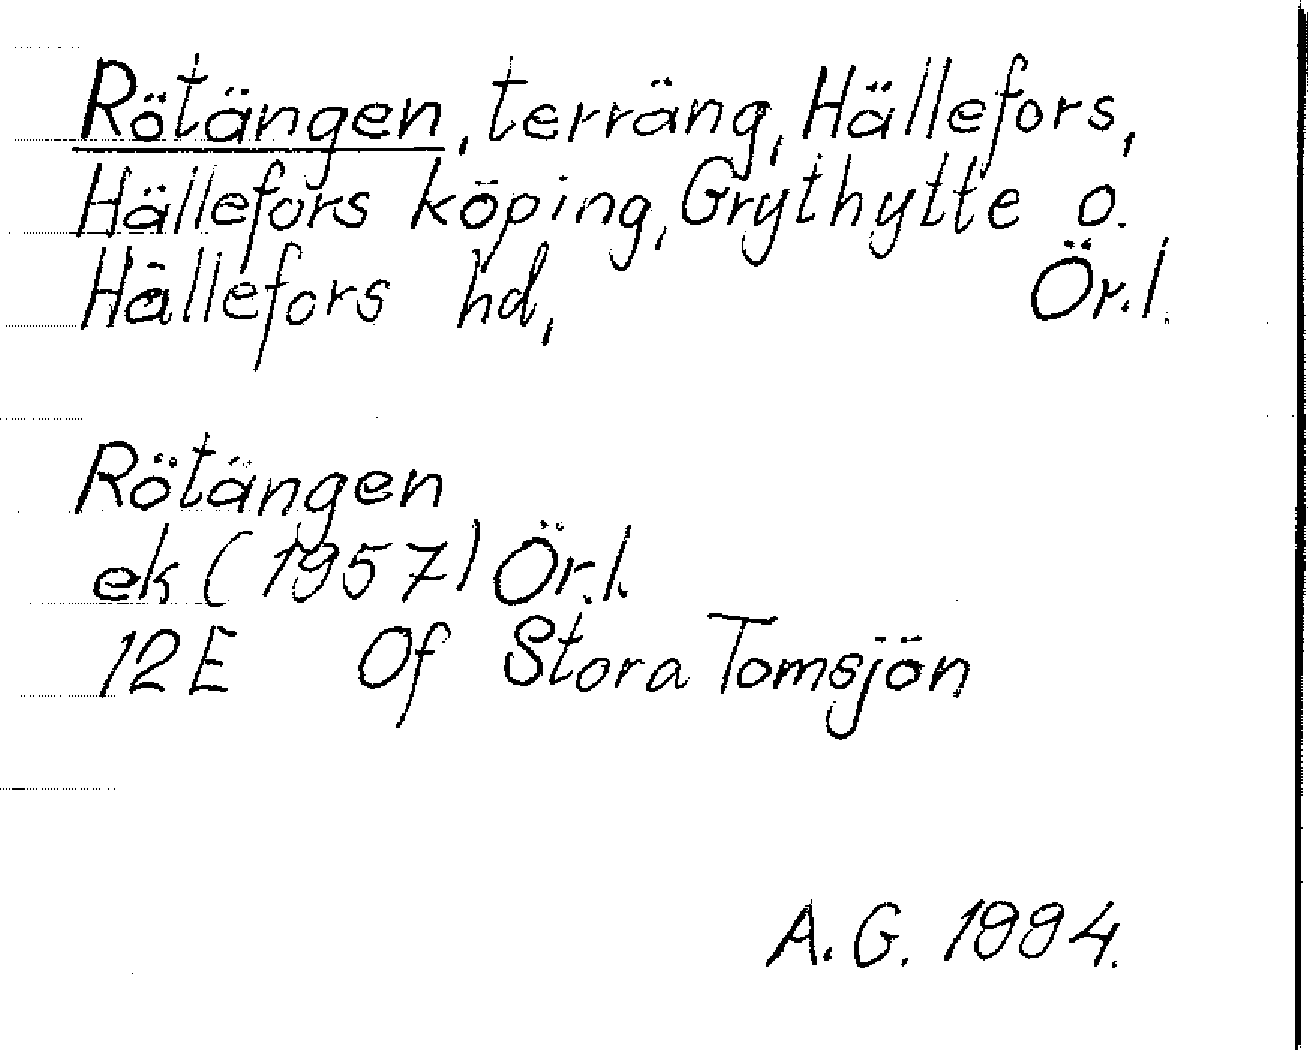 Rötängen, terräng, Hällefors,
Hällefors köping, Grythytte o.
Hällefors hd, Ör.l.
Rötängen
ek (1957) Ör.l.
12E Of Stora Tomsjön
A.G. 1994.